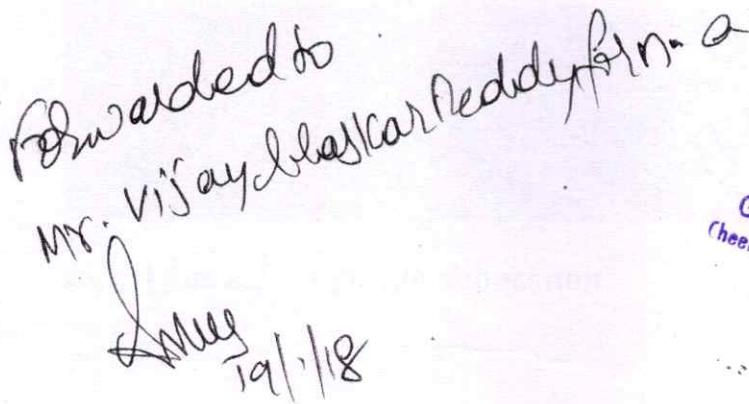 Forwarded to
Mr. Vijay bhaskar Reddy for n. a
19/1/18